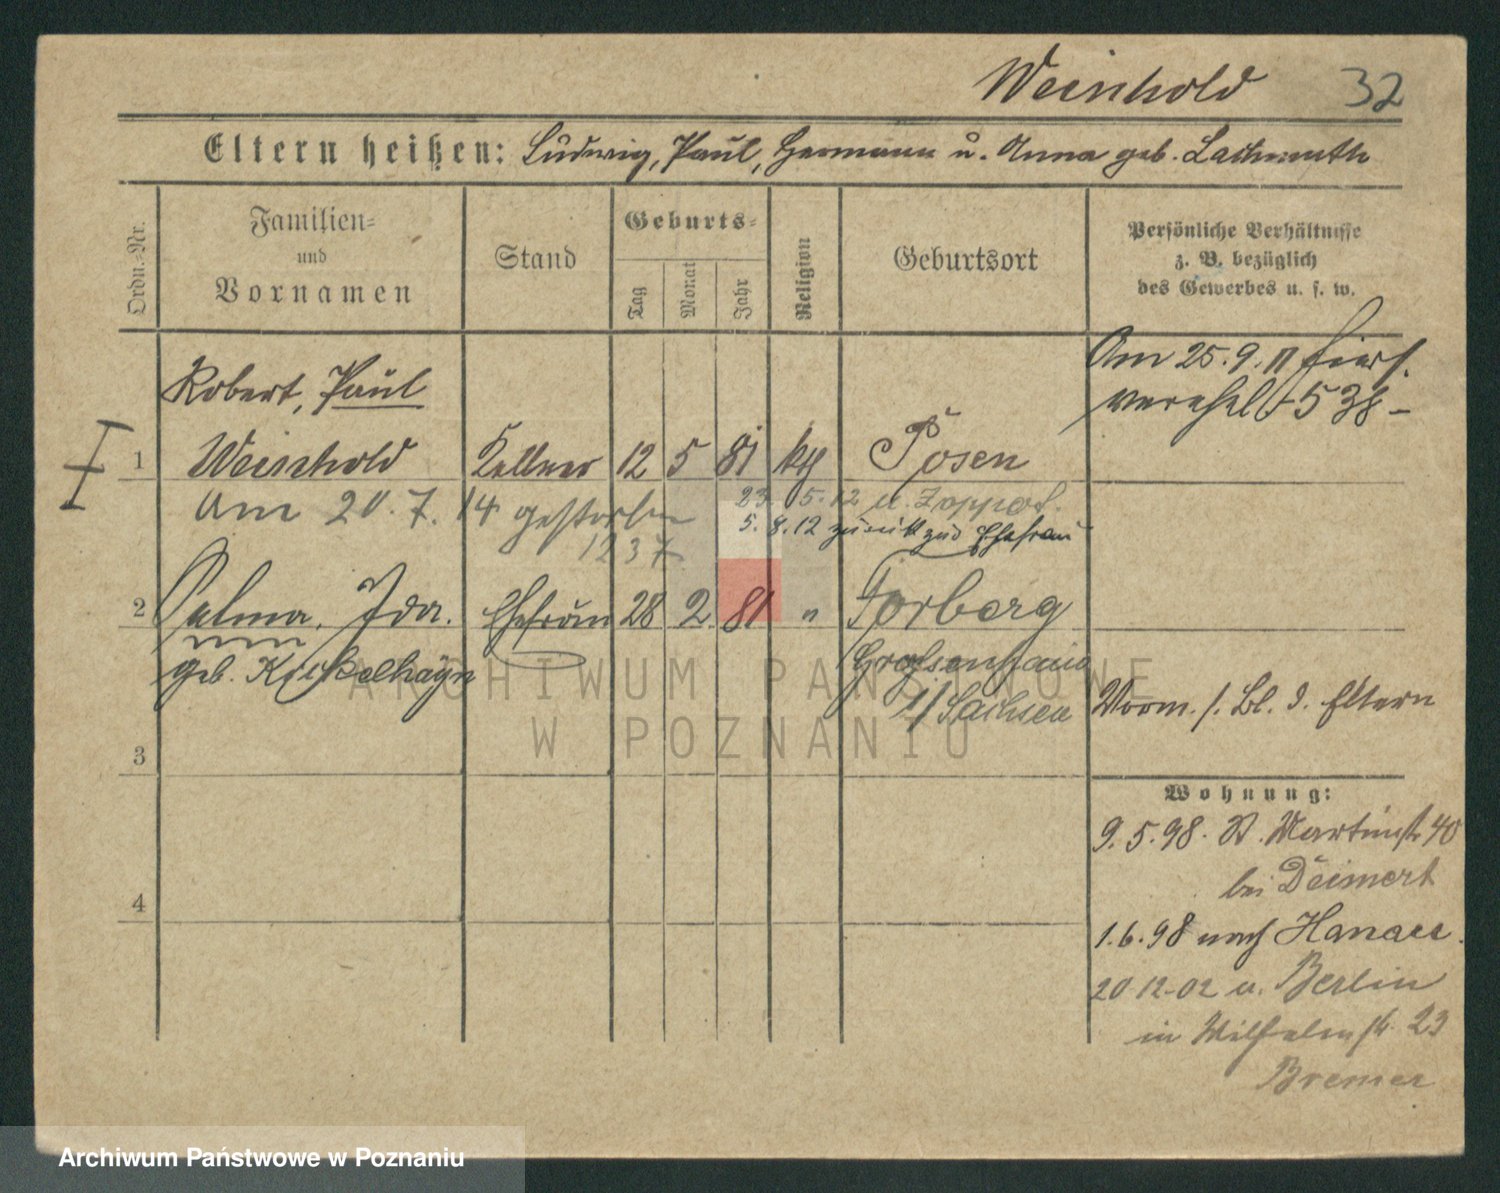 Weinhold 32
Eltern heißen: Ludwig, Paul, Hermann u. Anna geb. Lachmuth
Ordn.-Nr.
Familien-
und
Vornamen
Stand
Geburts-
Tag
Monat
Jahr
Religion
Geburtsort
Persönliche Verhältnisse
z. B. bezüglich
des Gewerbes u. s. w.
Am 25.9.11 hiers.
verehel. 538
Robert, Paul
1 Weinhold Kellner 12 5 81 kth Posen
Am 20.7.14 gestorben
1237
23.5.12 n. Zoppot.
5.8.12 zurück zur Ehefrau
2 Selma, Ida. Ehefrau 28 2. 81 " Forberg
geb. Krickelhayn
Großenhain
i/Sachsen
Vorm. s. Bl. d. Eltern
3
Wohnung:
9.5.98. St. Martinstr. 40
bei Deimert
4
1.6.98 nach Hanau.
20.12.02 v. Berlin
in Wilhelmstr. 23
Bremer
ARCHIWUM PAŃSTWOWE
W POZNANIU
Archiwum Państwowe w Poznaniu